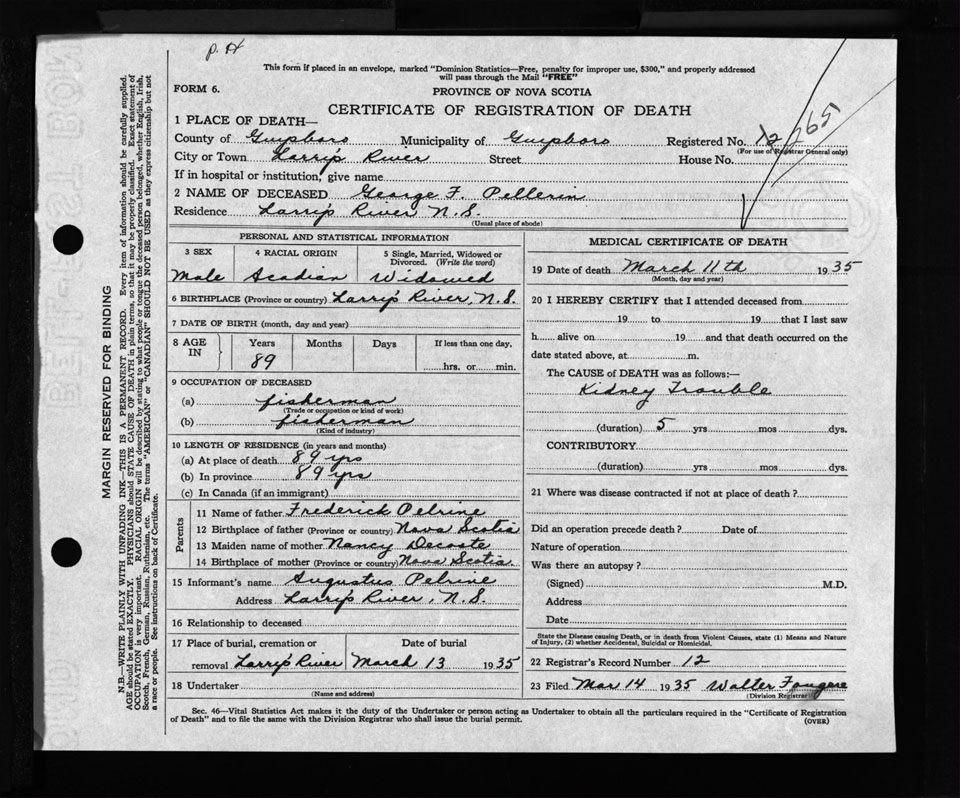 p. H
This form if placed in an envelope, marked "Dominion Statistics—Free, penalty for improper use, $300," and properly addressed
will pass through the Mail "FREE"
FORM 6.
PROVINCE OF NOVA SCOTIA
CERTIFICATE OF REGISTRATION OF DEATH
1 PLACE OF DEATH—
County of Guysboro Municipality of Guysboro Registered No. 12 765
(For use of Registrar General only)
City or Town Larry's River Street House No.
If in hospital or institution, give name
2 NAME OF DECEASED George F. Pellerin
Residence Larry's River N.S.
(Usual place of abode)
PERSONAL AND STATISTICAL INFORMATION
3 SEX 4 RACIAL ORIGIN 5 Single, Married, Widowed or
Divorced. (Write the word)
Male Acadian Widowed
6 BIRTHPLACE (Province or country) Larry's River, N.S.
7 DATE OF BIRTH (month, day and year)
8 AGE IN Years Months Days If less than one day,
89 hrs. or min.
9 OCCUPATION OF DECEASED
(a) fisherman
(Trade or occupation or kind of work)
(b) fisherman
(Kind of industry)
10 LENGTH OF RESIDENCE (in years and months)
(a) At place of death 89 yrs
(b) In province 89 yrs
(c) In Canada (if an immigrant)
Parents
11 Name of father Frederick Pelrine
12 Birthplace of father (Province or country) Nova Scotia
13 Maiden name of mother Nancy Decoste
14 Birthplace of mother (Province or country) Nova Scotia.
15 Informant's name Augustus Pelrine
Address Larry's River, N.S.
16 Relationship to deceased
17 Place of burial, cremation or Date of burial
removal Larry's River March 13 1935
18 Undertaker
(Name and address)
MEDICAL CERTIFICATE OF DEATH
19 Date of death March 11th 1935
(Month, day and year)
20 I HEREBY CERTIFY that I attended deceased from
19 to 19 that I last saw
h alive on 19 and that death occurred on the
date stated above, at m.
The CAUSE of DEATH was as follows:—
Kidney Trouble
(duration) 5 yrs mos dys.
CONTRIBUTORY
(duration) yrs mos dys.
21 Where was disease contracted if not at place of death?
Did an operation precede death? Date of
Nature of operation
Was there an autopsy?
(Signed) M.D.
Address
Date
State the Disease causing Death, or in death from Violent Causes, state (1) Means and Nature
of Injury, (2) whether Accidental, Suicidal or Homicidal.
22 Registrar's Record Number 12
23 Filed Mar 14 1935 Walter Fougere
(Division Registrar)
Sec. 46—Vital Statistics Act makes it the duty of the Undertaker or person acting as Undertaker to obtain all the particulars required in the "Certificate of Registration
of Death" and to file the same with the Division Registrar who shall issue the burial permit.
(OVER)
MARGIN RESERVED FOR BINDING
N.B.—WRITE PLAINLY WITH UNFADING INK—THIS IS A PERMANENT RECORD. Every item of information should be carefully supplied.
AGE should be stated EXACTLY. PHYSICIANS should STATE CAUSE OF DEATH in plain terms, so that it may be properly classified. Exact statement of
OCCUPATION is very important. RACIAL ORIGIN will be described by stating to what people or tongue the deceased person belonged, whether English, Irish,
Scotch, French, German, Russian, Ruthenian, etc. The terms "AMERICAN" or "CANADIAN" SHOULD NOT BE USED as they express citizenship but not
a race or people. See instructions on back of Certificate.